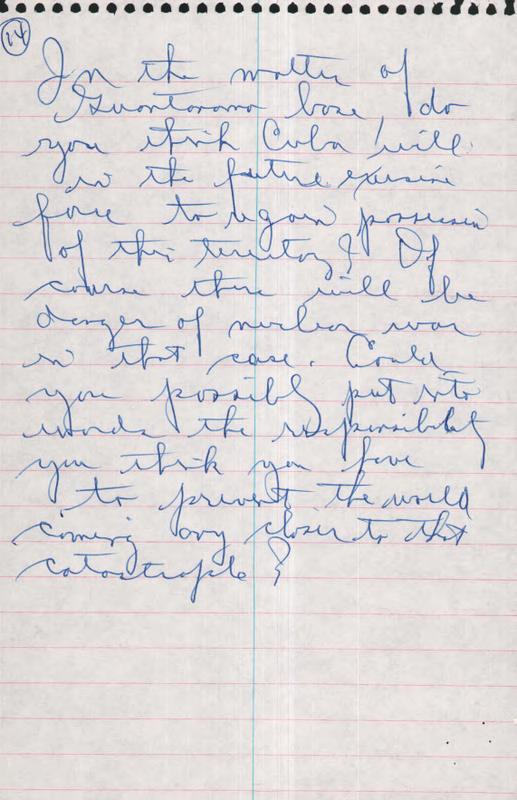 14
In the matter of
Guantanamo base, do
you think Cuba will
in the future exercise
force to regain possession
of this territory? Of
course there will be
danger of nuclear war
in that case. Could
you possibly put into
words the responsibility
you think you have
to prevent the world
coming any closer to that
catastrophe?